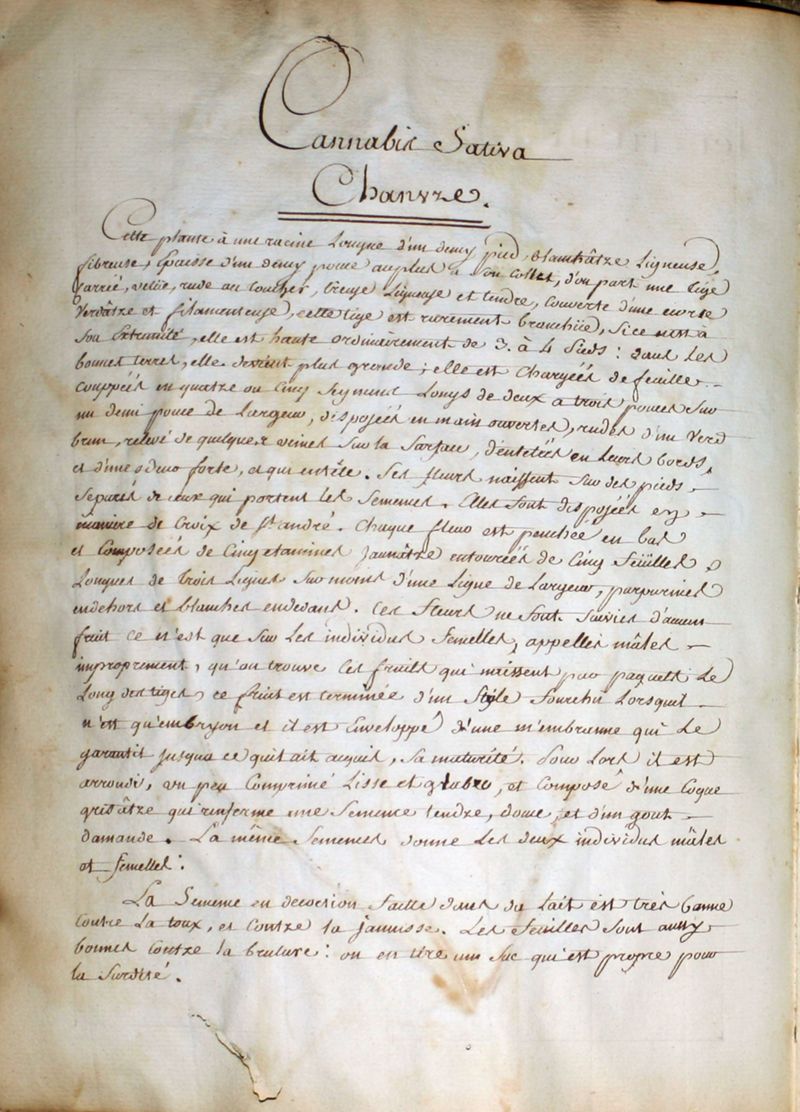 Cannabis Sativa
Chanvre.
Cette plante à une racine Longue d'un demy pied, blanchâtre Ligneuse,
fibreuse, Epaisse d'un demy pouce auplus du Collet, d'ou part une tige
carrié, velüe, rude au toucher, creuse Ligneuse et tendre, couverte d'une ecorse
Verdâtre et filamenteuse, cette tige est rarement branchüe, si ce n'est à
Son Extremité, elle est haute ordinairement de 3. à 4 Pieds : dans les
bonnes terres, elle devient plus grande ; elle est Chargéés de feuille
Couppéés en quatre ou Cinq Segmens Longs de deux à trois pouces Sur
un demi pouce de Largeur, disposéés en main ouvertes, rudes d'un Verd
brun, relevé de quelques veines Sur la Surface, dentelés en Leurs bords,
et d'une odeur forte, et qui entête. Ses fleurs naissent Sur des pieds
Separés de ceux qui portent les Semences. Elles Sont disposéés en
maniere de Croix de St andré. Chaque fleur est penchée en bas
et Composéés de Cinq etamines Jaunâtre entouréés de Cinq feüilles
Longues de trois Lignes Sur moins d'une Ligne de Largeur, purpurines
endehors et blanches endedans. Ces fleurs ne Sont Suivies d'aucun
fruit ce n'est que Sur Les individus femelles, appelles mâles
improprement, qu'on trouve Ces fruits qui naissent par paquets Le
Long des tiges, ce fruit est terminée d'un Style fourchu Lorsquil
n'est qu'embryon et il est Enveloppé d'une m'embranne qui Le
garantit jusqua ce quil ait acquis, Sa maturité. Pour Lors il est
arrondi, un peu Comprimé Lisse et glabre, et Composé d'une Coque
grisâtre qui renferme une Semence tendre, douce, et d'un gout
damande. La même Semences donne Les deux individus mâles
et femelles.
La Semence en decoction faitte dans du Lait est très bonne
Contre La toux, et Contre la jaunisse. Les feuilles Sont aussy
bonnes Contre la brulure : on en tire un Suc qui est propre pour
la Surdité.